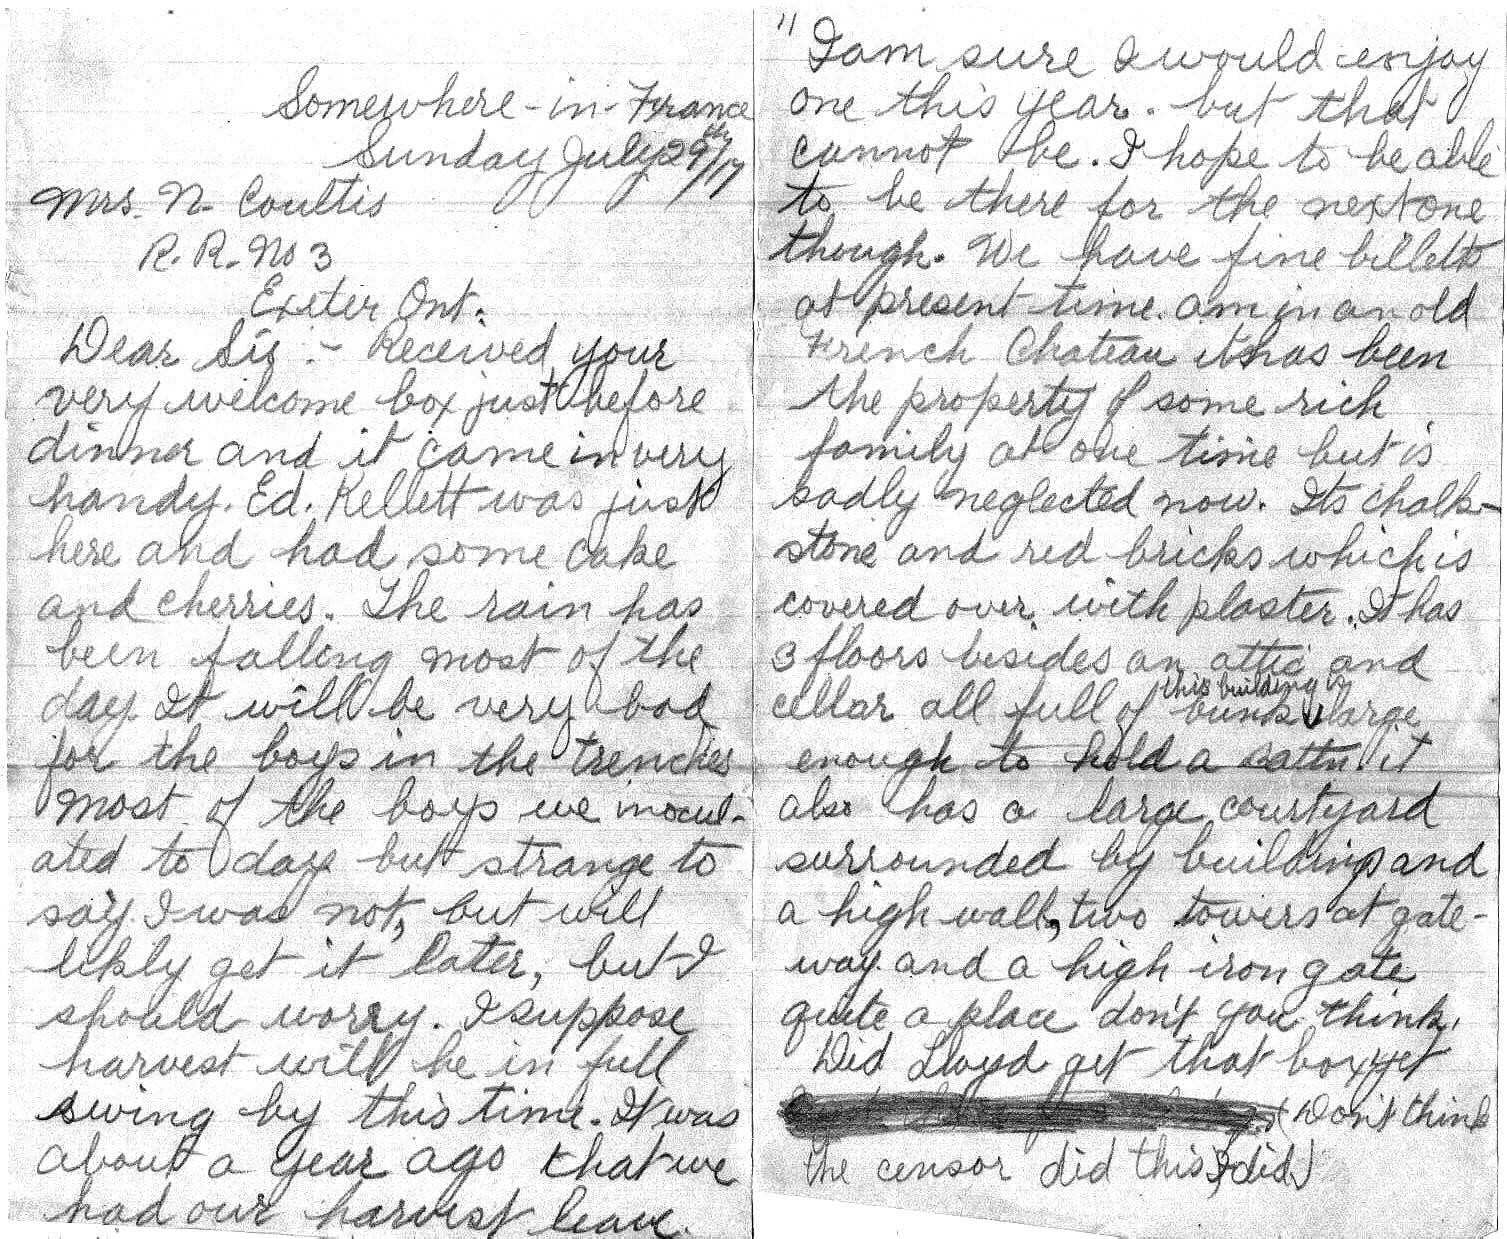 Somewhere-in-France
Sunday July 29th/17
Mrs. N. Coultis
R. R. No 3
Exeter Ont.
Dear Sis :- Received your
very welcome box just before
dinner and it came in very
handy. Ed. Kellett was just
here and had some cake
and cherries. The rain has
been falling most of the
day. It will be very bad
for the boys in the trenches
most of the boys we inocul-
ated to day but strange to
say I was not, but will
likly get it later, but I
should worry. I suppose
harvest will be in full
swing by this time. It was
about a year ago that we
had our harvest leave.
" I am sure I would enjoy
one this year. but that
cannot be. I hope to be able
to be there for the next one
though. We have fine billetts
at present time. am in an old
French Chateau it has been
the property of some rich
family at one time but is
sadly neglected now. Its chalk-
stone and red bricks which is
covered over with plaster. It has
3 floors besides an attic and
this building is
cellar all full of bunks large
enough to hold a battn. it
also has a large courtyard
surrounded by buildings and
a high wall, two towers at gate-
way. and a high iron gate
quite a place don't you think.
Did Lloyd get that box yet
(Don't think
the censor did this, I did)